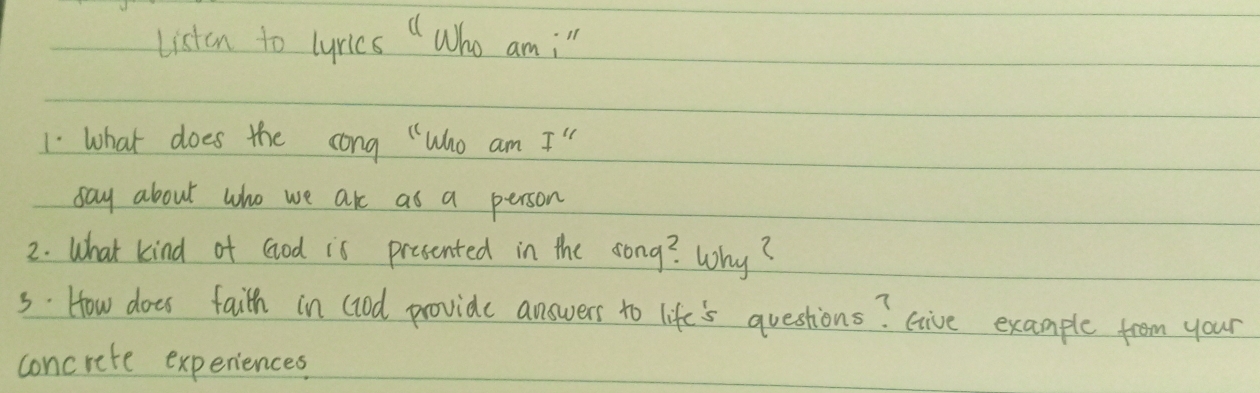 Listen to lyrics "Who am i"
1. What does the song "Who am I"
say about who we are as a person
2. What kind of God is presented in the song? Why?
3. How does faith in God provide answers to life's questions? Give example from your
concrete experiences.